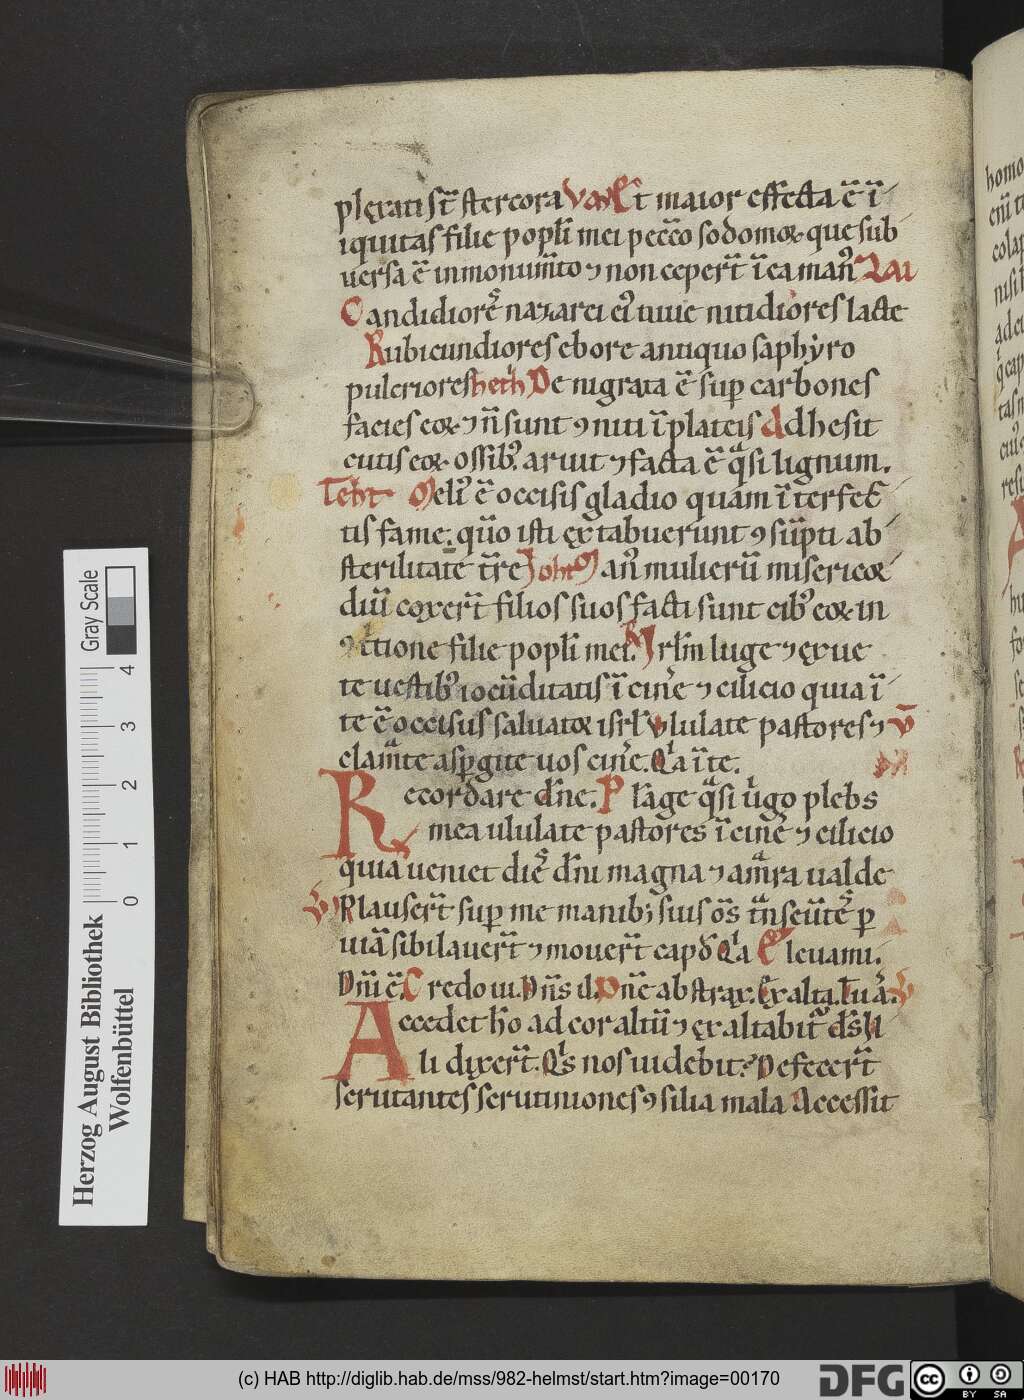 plęrati st̄ stercora Vav Et maior effecta ē ī
iquitas filie popl̄i mei pecc̄o sodomoꝝ que sub
uersa ē in monum̄to ⁊ non ceper̄t ī ea man᷒ Zai
Candidiores nazarei ei᷒ niue nitidiores lacte
Rubicundiores ebore antiquo saphyro
pulcriores heth De nigrata ē sup carbones
facies eoꝝ ⁊ n̄ sunt ꝯniti ī plateis Adhesit
cutis eoꝝ ossib᷒ aruit ⁊ facta ē qͣsi lignum.
Teht Meli᷒ ē occisis gladio quam īterfec
tis fame. qūo isti extabuerunt ꝯsūpti ab
sterilitate t̄re Joht Man᷒ mulierū misericoꝝ
diū coxer̄t filios suos facti sunt cib᷒ eoꝝ in
ꝯttione filie popl̄i mei. Irl̄m luge ⁊ exue
te uestib᷒ iocūditatis ī cine ⁊ cilicio quia ī
te ē occisus saluatoꝝ isrl̄ Vlulate pastores ⁊ V̄
clamͣte aspgite uos cine. Qͥa īte.
Recordare dn̄e. Plāge qͣsi uͥgo plebs
mea ululate pastores ī cine ⁊ cilicio
quia ueniet dies dn̄i magna ⁊ amͣra ualde
V Plauser̄t sup me manib; suis os̄ tn̄seūtes p
uiā sibilauer̄t ⁊ mouer̄t cap Qͥa Eleuami.
Dn̄i ē. Credo ui. Dn̄s il. Dn̄e abstrax. Exalta. Tua. V
Accedet hō ad cor altū ⁊ exaltabit᷑ ds̄
Ali dixer̄t. Qͥs nos uidebit? Defecer̄t
scrutantes scrutiniones ꝯsilia mala Accessit
homo
colap
nisi
Gray Scale
4 3 2 1 0
Herzog August Bibliothek
Wolfenbüttel
(c) HAB http://diglib.hab.de/mss/982-helmst/start.htm?image=00170
DFG
cc BY SA